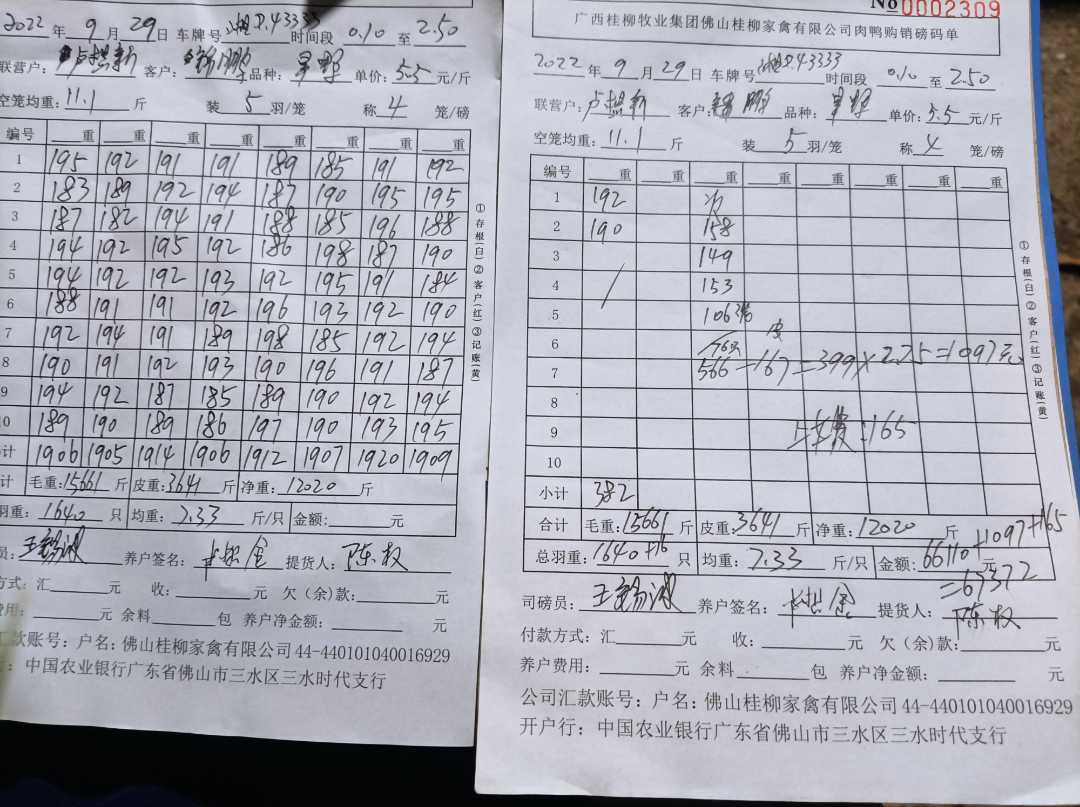 2022年9月29日 车牌号湘D.43333时间段 0.10 至 2.50
联营户: 客户: 鹏 品种: 单价: 5.5元/斤
空笼均重: 11.1 斤 装 5 羽/笼 称 4 笼/磅
编号 重 重 重 重 重 重 重 重
1 195 192 191 191 189 185 191 192
2 183 189 192 194 187 190 195 195
3 187 182 194 191 188 185 196 188
4 194 192 195 192 186 198 187 190
5 194 192 192 193 192 195 191 184
6 188 191 191 192 196 193 192 190
7 192 194 191 189 198 185 192 194
8 190 191 192 193 190 196 191 187
9 194 192 187 185 189 190 192 194
10 189 190 189 186 197 190 193 195
计 1906 1905 1914 1906 1912 1907 1920 1909
计 毛重: 15661 斤 皮重: 3641 斤 净重: 12020 斤
羽重: 1640 只 均重: 7.33 斤/只 金额: 元
员: 王 养户签名: 提货人: 陈权
方式: 汇 元 收: 元 欠(余)款: 元
费用: 元 余料 包 养户净金额: 元
汇款账号: 户名: 佛山桂柳家禽有限公司 44-440101040016929
: 中国农业银行广东省佛山市三水区三水时代支行
①存根(白)②客户(红)③记账(黄)
No 0002309
广西桂柳牧业集团佛山桂柳家禽有限公司肉鸭购销磅码单
2022年9月29日 车牌号湘D.43333时间段 0.10 至 2.50
联营户: 客户: 鹏 品种: 单价: 5.5元/斤
空笼均重: 11.1 斤 装 5 羽/笼 称 4 笼/磅
编号 重 重 重 重 重 重 重 重
1 192
2 190 158
3 149
4 153
5 106
6 76只 皮
7 566-167=399×2.75=1097元
8
9 :165
10
小计 382
合计 毛重: 15661 斤 皮重: 3641 斤 净重: 12020 斤
总羽重: 1640+16 只 均重: 7.33 斤/只 金额: 66110+1097+165 元
=67372
司磅员: 王 养户签名: 提货人: 陈权
付款方式: 汇 元 收: 元 欠(余)款: 元
养户费用: 元 余料 包 养户净金额: 元
公司汇款账号: 户名: 佛山桂柳家禽有限公司 44-440101040016929
开户行: 中国农业银行广东省佛山市三水区三水时代支行
①存根(白)②客户(红)③记账(黄)